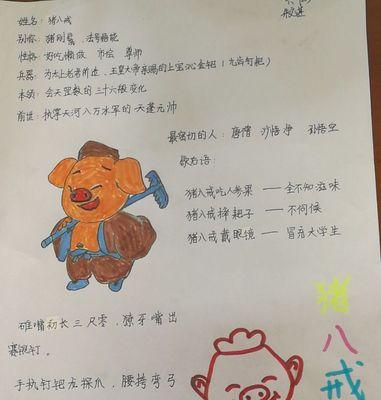 姓名：猪八戒
别称：猪刚鬣、法号悟能
性格：好吃懒做 市侩 尊师
兵器：为太上老君所造、玉皇大帝亲赐的上宝沁金钯（九齿钉耙）
本领：会天罡数的三十六般变化
前世：执掌天河八万水军的天蓬元帅
最密切的人：唐僧 沙悟净 孙悟空
歇后语：
猪八戒吃人参果 —— 全不知滋味
猪八戒摔耙子 —— 不伺候
猪八戒戴眼镜 —— 冒充大学生
碓嘴初长三尺零，獠牙嘴出
赛银钉。
手执钉钯龙探爪，腰挎弯弓
猪八戒